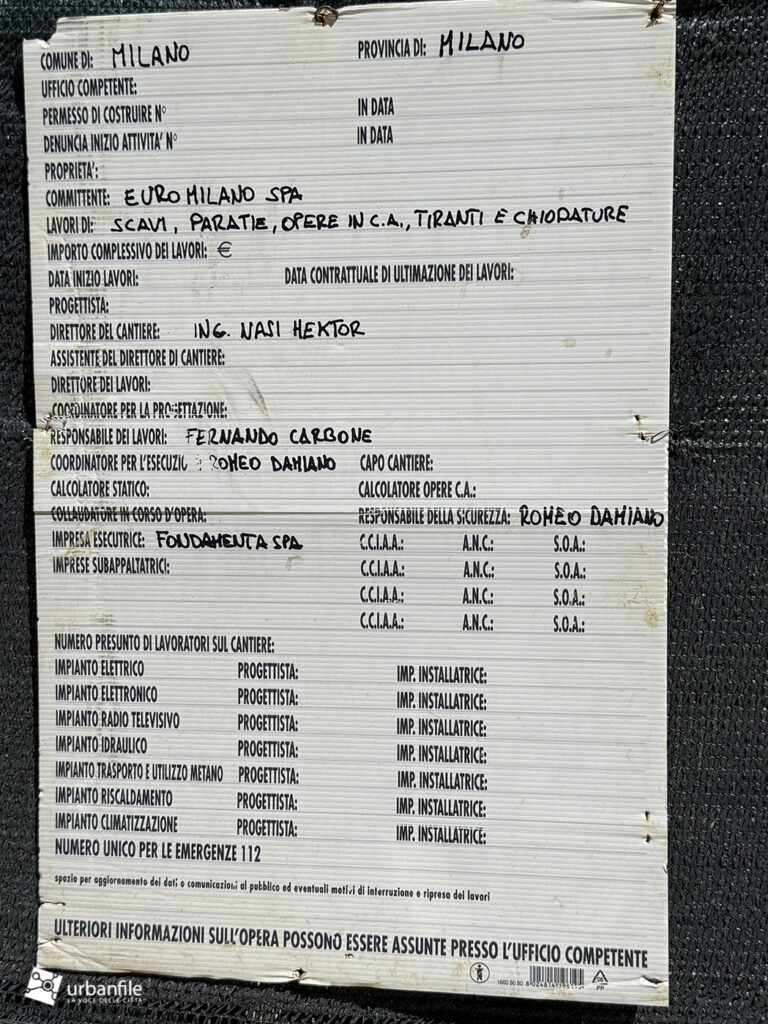 COMUNE DI: MILANO PROVINCIA DI: MILANO
UFFICIO COMPETENTE:
PERMESSO DI COSTRUIRE N° IN DATA
DENUNCIA INIZIO ATTIVITA' N° IN DATA
PROPRIETA':
COMMITTENTE: EUROMILANO SPA
LAVORI DI: SCAVI, PARATIE, OPERE IN C.A., TIRANTI E CHIODATURE
IMPORTO COMPLESSIVO DEI LAVORI: €
DATA INIZIO LAVORI: DATA CONTRATTUALE DI ULTIMAZIONE DEI LAVORI:
PROGETTISTA:
DIRETTORE DEL CANTIERE: ING. NASI HEKTOR
ASSISTENTE DEL DIRETTORE DI CANTIERE:
DIRETTORE DEI LAVORI:
COORDINATORE PER LA PROGETTAZIONE:
RESPONSABILE DEI LAVORI: FERNANDO CARBONE
COORDINATORE PER L'ESECUZIO ROMEO DAMIANO CAPO CANTIERE:
CALCOLATORE STATICO: CALCOLATORE OPERE C.A.:
COLLAUDATORE IN CORSO D'OPERA: RESPONSABILE DELLA SICUREZZA: ROMEO DAMIANO
IMPRESA ESECUTRICE: FONDAMENTA SPA C.C.I.A.A.: A.N.C.: S.O.A.:
IMPRESE SUBAPPALTATRICI: C.C.I.A.A.: A.N.C.: S.O.A.:
C.C.I.A.A.: A.N.C.: S.O.A.:
C.C.I.A.A.: A.N.C.: S.O.A.:
NUMERO PRESUNTO DI LAVORATORI SUL CANTIERE:
IMPIANTO ELETTRICO PROGETTISTA: IMP. INSTALLATRICE:
IMPIANTO ELETTRONICO PROGETTISTA: IMP. INSTALLATRICE:
IMPIANTO RADIO TELEVISIVO PROGETTISTA: IMP. INSTALLATRICE:
IMPIANTO IDRAULICO PROGETTISTA: IMP. INSTALLATRICE:
IMPIANTO TRASPORTO E UTILIZZO METANO PROGETTISTA: IMP. INSTALLATRICE:
IMPIANTO RISCALDAMENTO PROGETTISTA: IMP. INSTALLATRICE:
IMPIANTO CLIMATIZZAZIONE PROGETTISTA: IMP. INSTALLATRICE:
NUMERO UNICO PER LE EMERGENZE 112
spazio per aggiornamento dei dati o comunicazioni al pubblico ed eventuali motivi di interruzione e ripresa dei lavori
ULTERIORI INFORMAZIONI SULL'OPERA POSSONO ESSERE ASSUNTE PRESSO L'UFFICIO COMPETENTE
1660 50 50
PP
urbanfile
LA VOCE DELLE CITTÀ